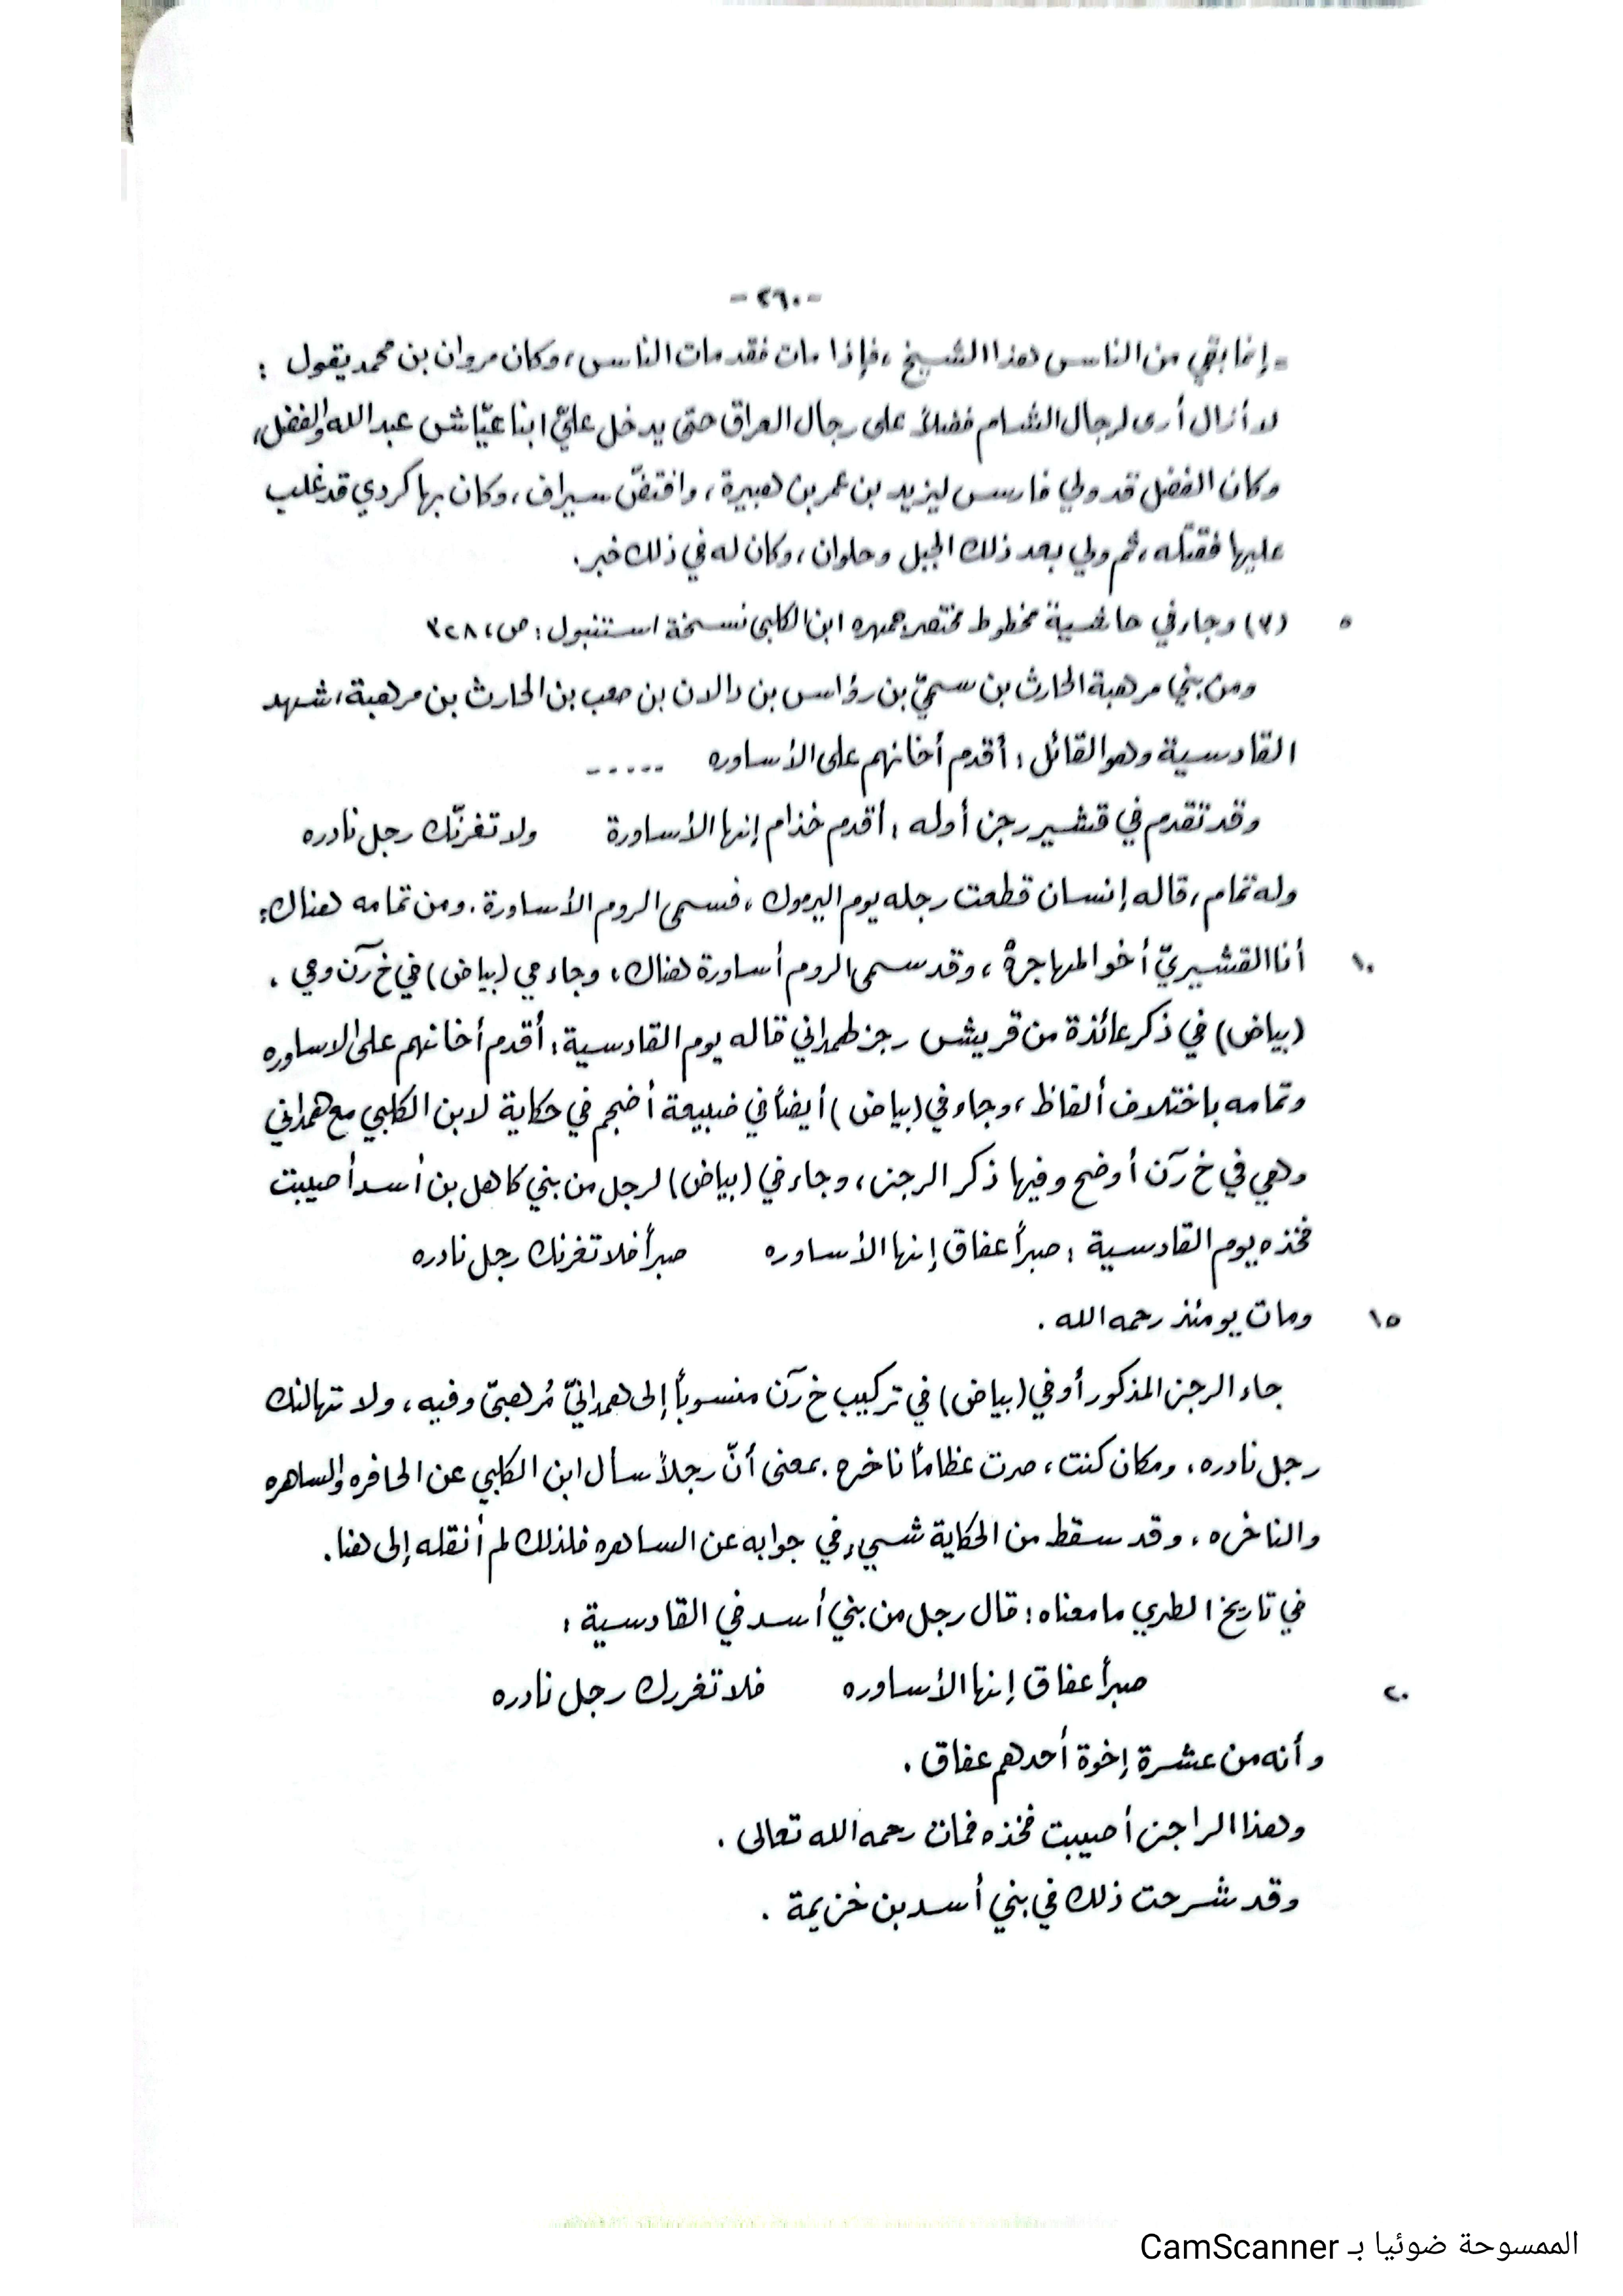 -٢٦٠-
= إنما بقي من الناس هذا الشيخ، فإذا مات فقد مات الناس، وكان مروان بن محمد يقول :
لا أزال أرى لرجال الشام فضلاً على رجال العراق حتى يدخل عليّ ابنا عيّاش عبد الله والفضل،
وكان الفضل قد ولي فارس ليزيد بن عمر بن هبيرة، وافتضّ سيراف، وكان بها كردي قد غلب
عليها فقتله، ثم ولي بعد ذلك الجبل وحلوان، وكان له في ذلك خبر.
٥ (٣) وجاء في حاشية مخطوط مختصر جمهره ابن الكلبي نسخة استنبول: ص، ٣٢٨
ومن بني مرهبة الحارث بن سميّ بن رؤاس بن دالان بن صعب بن الحارث بن مرهبة، شهد
القادسية وهو القائل: أقدم أخا نهم على الأساوره -----
وقد تقدم في قشير رجز أوله: أقدم خذام إنها الأساورة ولا تغرنّك رجل نادره
وله تمام، قاله إنسان قطعت رجله يوم اليرموك، فسمى الروم الأساورة. ومن تمامه هناك:
١٠ أنا القشيريّ أخو المهاجرهْ، وقد سمى الروم أساورة هناك، وجاء مي (بياض) في خ رآن وهي .
(بياض) في ذكر عائذة من قريش رجز لهمداني قاله يوم القادسية: أقدم أخا نهم على الاساوره
وتمامه باختلاف ألفاظ، وجاء في (بياض) أيضاً في ضبيعة أضجم في حكاية لابن الكلبي مع همداني
وهي في خ رآن أوضح وفيها ذكر الرجز، وجاء في (بياض) لرجل من بني كاهل بن أسد أصيبت
فخذه يوم القادسية: صبراً عفاق إنها الأساوره صبراً فلا تغرنك رجل نادره
١٥ ومات يومئذ رحمه الله .
جاء الرجز المذكور أو في (بياض) في تركيب خ رآن منسوباً إلى همدانيّ مُرهبيّ وفيه، ولا تهالنك
رجل نادره، ومكان كنت، صرت عظاماً ناخره. بمعنى أنّ رجلاً سأل ابن الكلبي عن الحافره والساهره
والناخره، وقد سقط من الحكاية شيء في جوابه عن الساهره فلذلك لم أنقله إلى هنا.
في تاريخ الطبري ما معناه: قال رجل من بني أسد في القادسية:
٢٠ صبراً عفاق إنها الأساوره فلا تغررك رجل نادره
وأنه من عشرة إخوة أحدهم عفاق .
وهذا الراجز أصيبت فخذه فمات رحمه الله تعالى .
وقد شرحت ذلك في بني أسد بن خزيمة .
الممسوحة ضوئيا بـ CamScanner